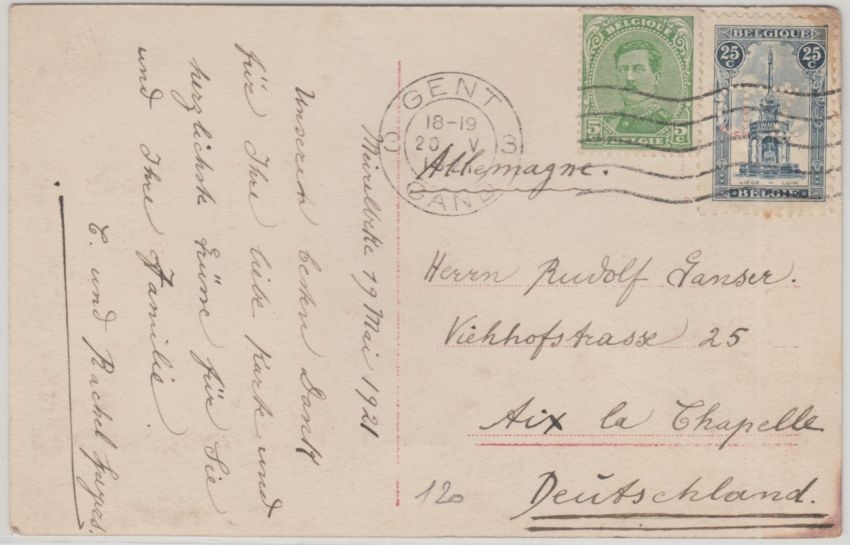 Meirelbeke 19 Mai 1921
Unseren besten Dank
für Ihre liebe Kark und
herzlichste Grüsse für Sie
und Ihre Familie
C. und Rachel
BELGIQUE
5c 5c
BELGIE
BELGIQUE
25c 25c
LIÈGE - LUIK
BELGIE
GENT
18-19
20 V
3
GAND
Allemagne.
Herrn Rudolf Ganser.
Viehhofstrasse 25
Aix la Chapelle
Deutschland.
120